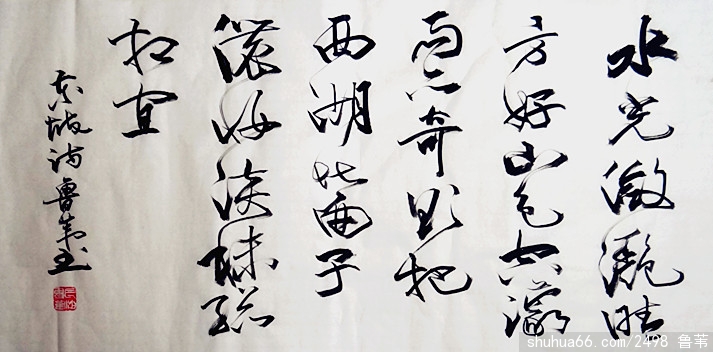 水光潋滟晴
方好山色空濛
雨亦奇欲把
西湖比西子
浓妆淡抹总
相宜
东坡诗鲁苇书
shuhua66.com/2498 鲁苇